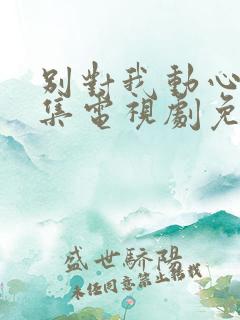 别對我動心
集電視劇免
盛世驕陽
未经同意禁止转载